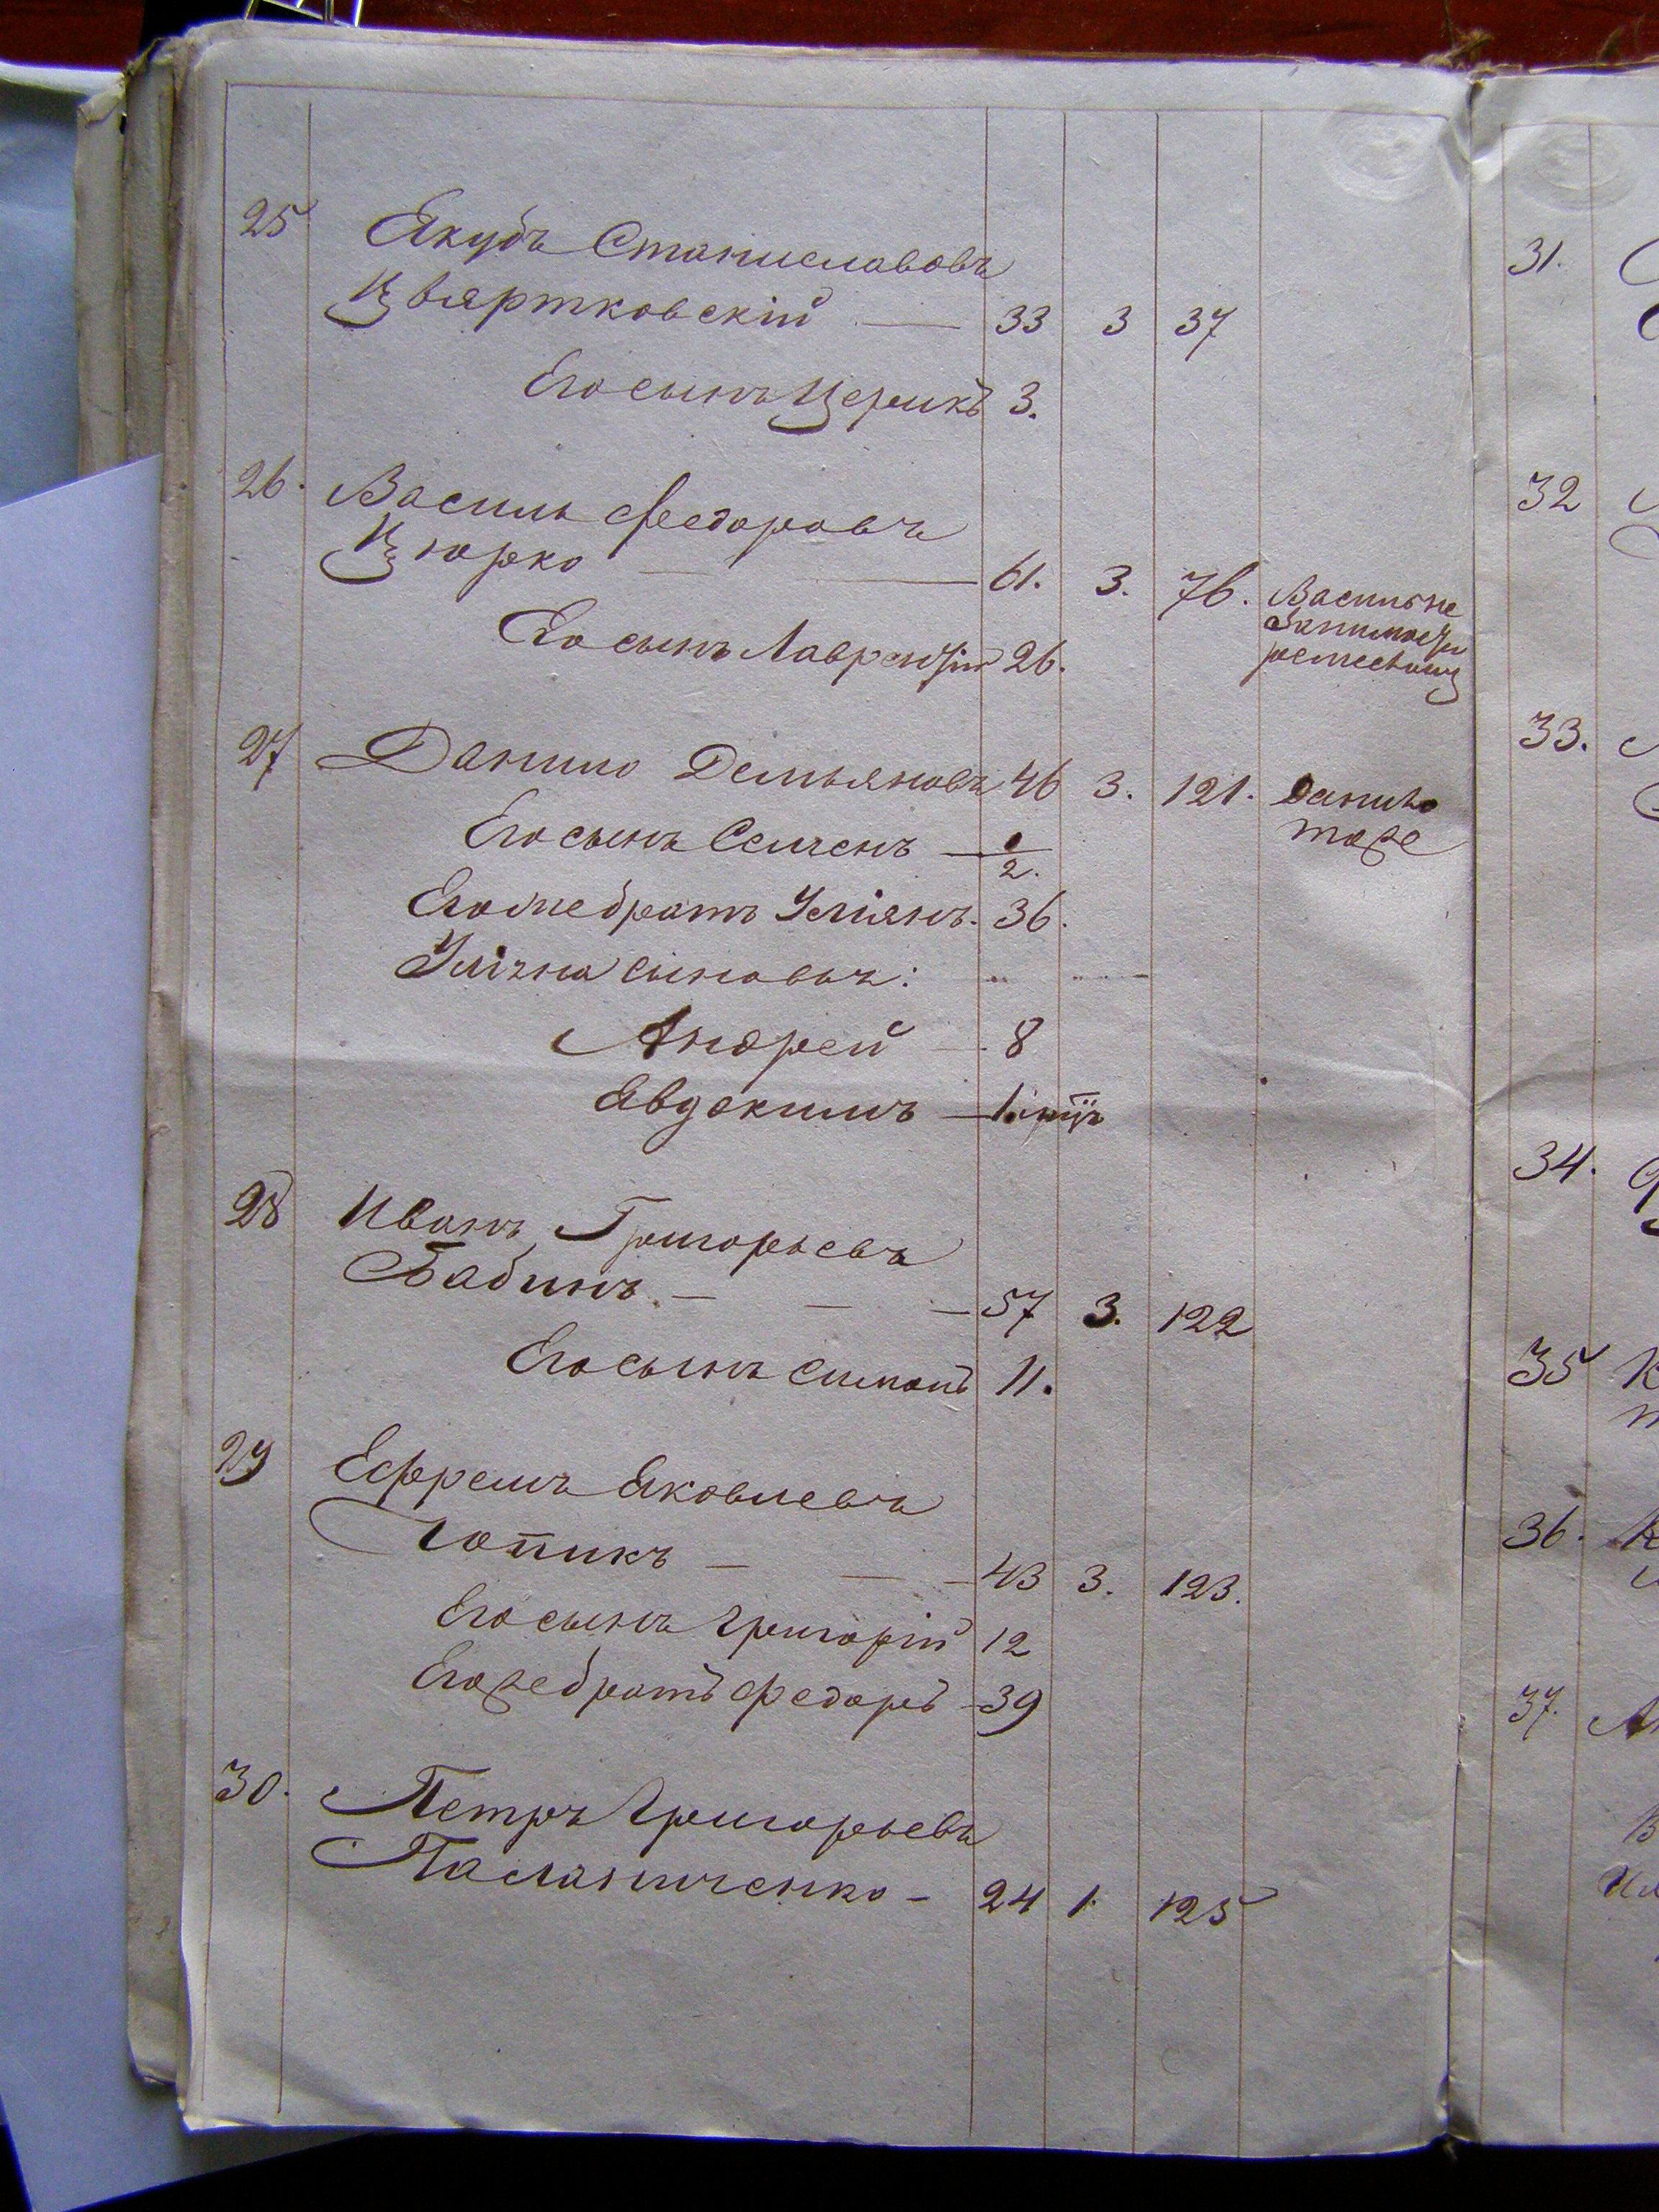 25 Якубъ Станиславовъ
Цвяртковскій — 33 3 37
Его сынъ Церикъ 3.
26. Василь Федоровъ
Цюрко — 61. 3. 76. Василь не
Его сынъ Лаврентій 26.
27 Данило Демьяновъ 46 3. 121. Данило
тоже
Его сынъ Семенъ — 1/2.
Его же братъ Уліянъ. 36.
Уліяна сыновья:
Андрей — 8
Авдокимъ — 1
28 Иванъ Григорьевъ
Бабинъ — — — 57 3. 122
Его сынъ Симонъ 11.
29 Ефремъ Яковлевъ
Гопикъ — — — 43 3. 123.
Его сынъ Григорій 12
Его же братъ Федоръ — 39
30. Петръ Григорьевъ
Пасланиченко — 24 1. 125
31.
32
33.
34.
35 К
36. К
37. Ан